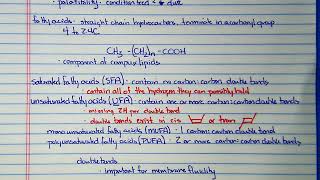 palatability - condition feed & dust
fatty acids - straight chain hydrocarbons, terminate in a carboxyl group
4 to 24C
CH3 - (CH2)n - COOH
- component of complex lipids
saturated fatty acids (SFA) - contain no carbon:carbon double bonds
- contain all of the hydrogen they can possibly hold
unsaturated fatty acids (UFA) - contain one or more carbon:carbon double bonds
- missing 2H per double bond
- double bonds exist in cis or trans
monounsaturated fatty acids (MUFA) - 1 carbon:carbon double bond
polyunsaturated fatty acids (PUFA) - 2 or more carbon:carbon double bonds
double bonds
- important for membrane fluidity